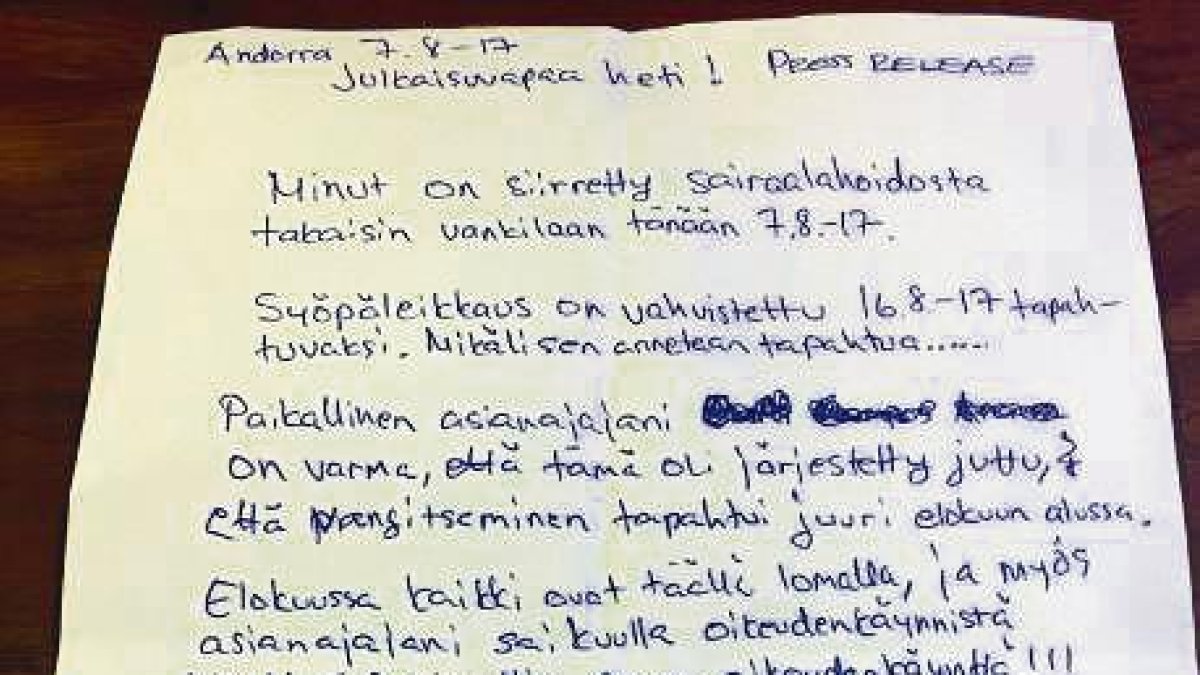 Andorra 7.8-17
Julkaisuvapaa heti! PRESS RELEASE
Minut on siirretty sairaalahoidosta
takaisin vankilaan tänään 7.8.-17.
Syöpäleikkaus on vahvistettu 16.8-17 tapah-
tuvaksi. Mikäli sen annetaan tapahtua......
Paikallinen asianajajani
on varma, että tämä oli järjestetty juttu,
että vangitseminen tapahtui juuri elokuun alussa.
Elokuussa kaikki ovat täällä lomalla, ja myös
asianajajani sai kuulla oikeudenkäynnistä